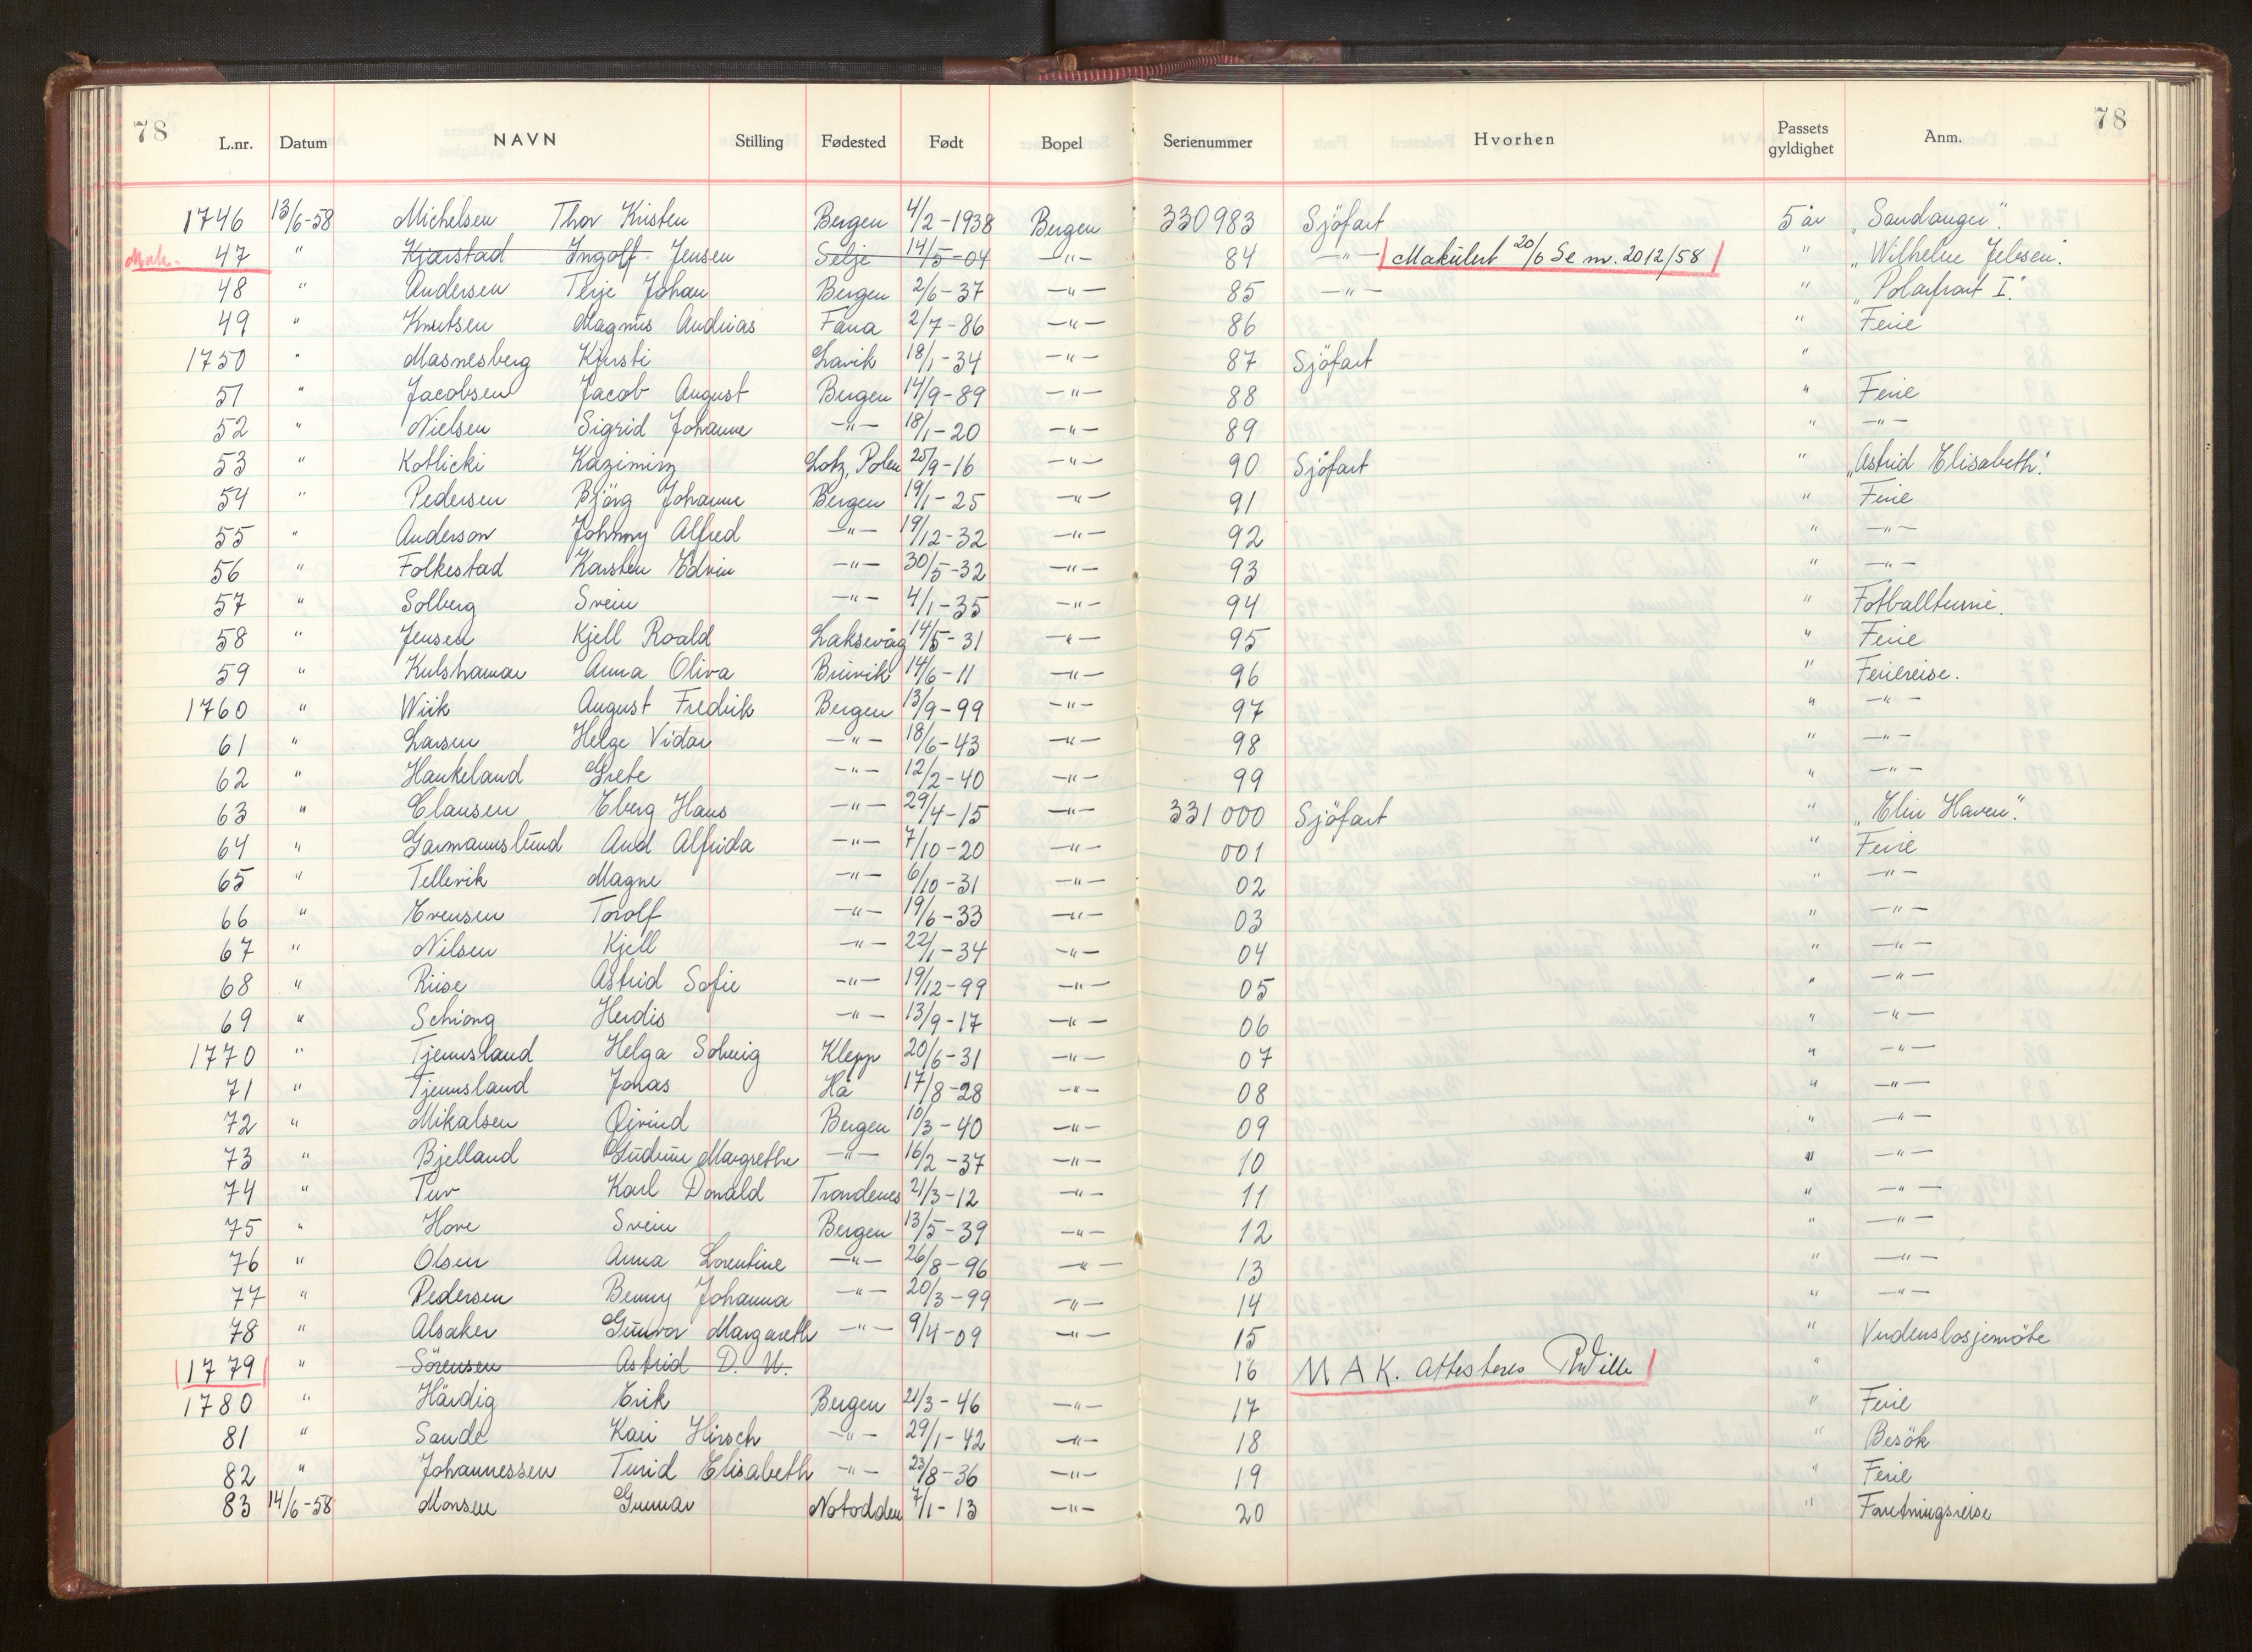 78 78
L.nr. Datum NAVN Stilling Fødested Født Bopel Serienummer Hvorhen Passets gyldighet Anm.
1746 13/6-58 Michelsen Thor Kristen Bergen 4/2-1938 Bergen 330983 Sjöfart 5 år "Sandanger".
Mak. 47 " Kjærstad Ingolf Jensen Selje 14/5-04 -"- 84 -"- Makülert 20/6 Se nr. 2012/58 " "Wilhelm Jebsen".
48 " Andersen Terje Johan Bergen 2/6-37 -"- 85 -"- " "Polarfront I".
49 " Knutsen Magnus Andreas Fana 2/7-86 -"- 86 " Ferie
1750 " Masnesberg Kjersti Lavik 18/1-34 -"- 87 Sjöfart "
51 " Jacobsen Jacob August Bergen 14/9-89 -"- 88 " Ferie
52 " Nielsen Sigrid Johanne -"- 18/1-20 -"- 89 " -"-
53 " Kotlicki Kazimirz Lotz, Polen 25/9-16 -"- 90 Sjöfart " "Astrid Elisabeth".
54 " Pedersen Björg Johanne Bergen 19/1-25 -"- 91 " Ferie
55 " Anderson Johnny Alfred -"- 19/12-32 -"- 92 " -"-
56 " Folkestad Karsten Edvin -"- 30/5-32 -"- 93 " -"-
57 " Solberg Svein -"- 4/1-35 -"- 94 " Fotballturné.
58 " Jensen Kjell Roald Laksevåg 14/5-31 -"- 95 " Ferie
59 " Kulshamar Anna Oliva Bruvik 14/6-11 -"- 96 " Feriereise.
1760 " Wiik August Fredrik Bergen 13/9-99 -"- 97 " -"-
61 " Larsen Helge Vidar -"- 18/6-43 -"- 98 " -"-
62 " Haukeland Grete -"- 12/2-40 -"- 99 " -"-
63 " Clausen Eberg Hans -"- 29/4-15 -"- 331000 Sjöfart " "Elin Haven".
64 " Garmannslund Aud Alfrida -"- 7/10-20 -"- 001 " Ferie
65 " Tellevik Magne -"- 6/10-31 -"- 02 " -"-
66 " Evensen Torolf -"- 19/6-33 -"- 03 " -"-
67 " Nilsen Kjell -"- 22/1-34 -"- 04 " -"-
68 " Riise Astrid Sofie -"- 19/12-99 -"- 05 " -"-
69 " Schiong Herdis -"- 13/9-17 -"- 06 " -"-
1770 " Tjemsland Helga Solveig Klepp 20/6-31 -"- 07 " -"-
71 " Tjemsland Jonas Hå 17/8-28 -"- 08 " -"-
72 " Mikalsen Öivind Bergen 10/3-40 -"- 09 " -"-
73 " Bjelland Gudrun Margrethe -"- 16/2-37 -"- 10 " -"-
74 " Tuv Karl Donald Trondenes 21/3-12 -"- 11 " -"-
75 " Hove Svein Bergen 13/5-39 -"- 12 " -"-
76 " Olsen Anna Lorentine -"- 26/8-96 -"- 13 " -"-
77 " Pedersen Benny Johanna -"- 20/3-99 -"- 14 " -"-
78 " Alsaker Gunvor Margareth -"- 9/4-09 -"- 15 " Verdenslosjemöte
1779 " Sörensen Astrid D. U. 16 MAK. attesteres "
1780 " Härdig Erik Bergen 21/3-46 -"- 17 " Ferie
81 " Sande Kari Hirsch -"- 29/1-42 -"- 18 " Besök
82 " Johannessen Turid Elisabeth -"- 23/8-36 -"- 19 " Ferie
83 14/6-58 Monsen Gunnar Notodden 7/1-13 -"- 20 " Foretningsreise